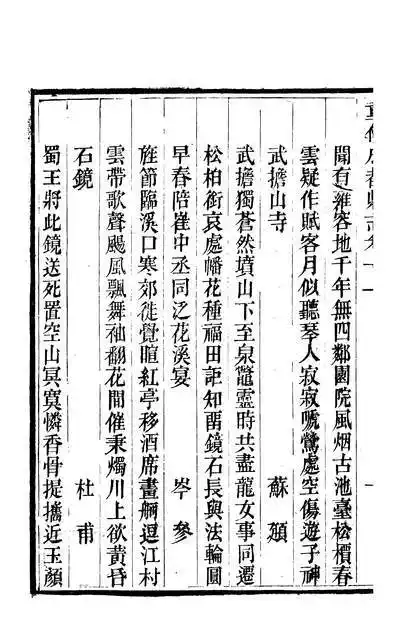 重修成都縣志卷十一
聞有雍容地千年無四鄰園院風烟古池臺松檟春
雲疑作賦客月似聽琴人寂寂嗁鶯處空傷遊子神
武擔山寺　蘇頲
武擔獨蒼然墳山下至泉鼈靈時共盡龍女事同遷
松柏銜哀處幡花種福田詎知留鏡石長與法輪圓
早春陪崔中丞同泛花溪宴　岑參
旌節臨溪口寒郊徙覺暄紅亭移酒席畫舸逗江村
雲帶歌聲颺風飄舞袖翻花間催秉燭川上欲黃昏
石鏡　杜甫
蜀王將此鏡送死置空山冥寞憐香骨提攜近玉顏